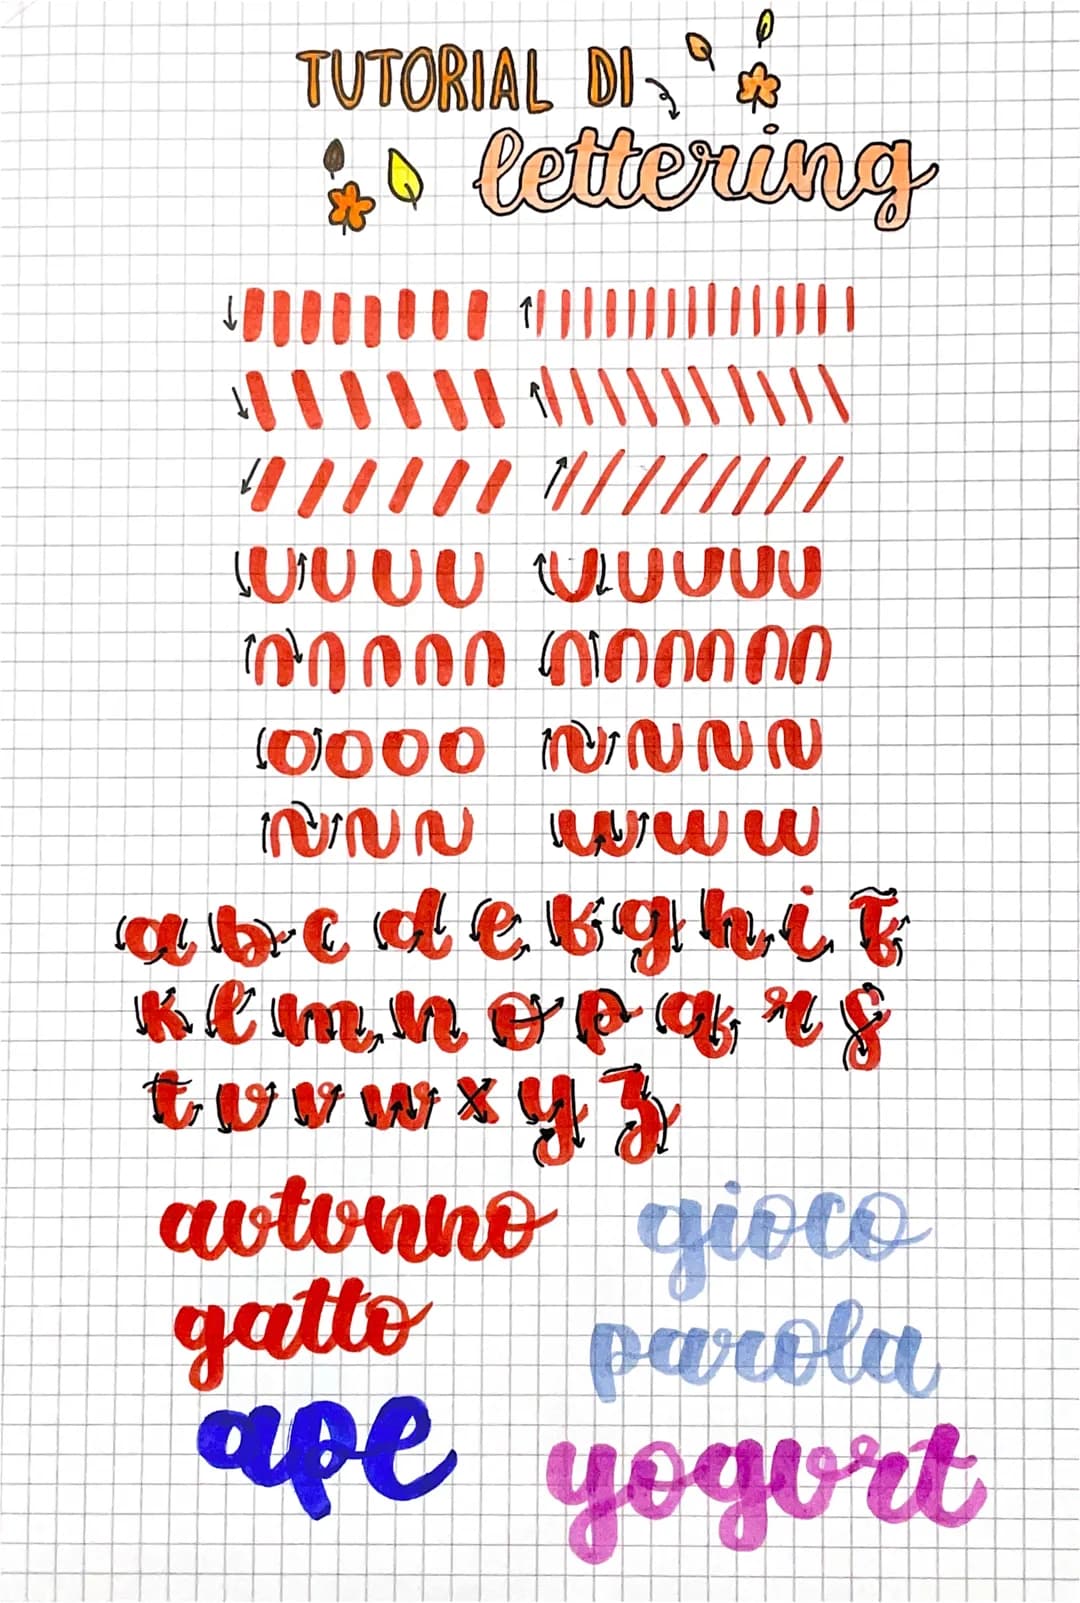 TUTORIAL DI
lettering
a b c d e f g h i j
k l m n o p q r s
t u v w x y z
autunno gioco
gatto parola
ape yogurt